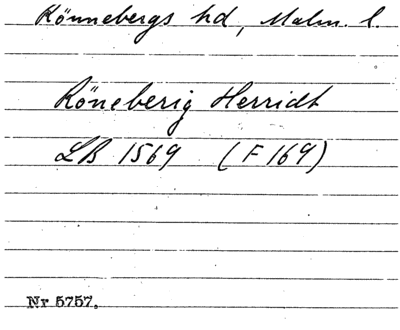 Rönnebergs hd, Malm. l.
Röneberig Herridt
LB 1569 (F 169)
Nr 5757.